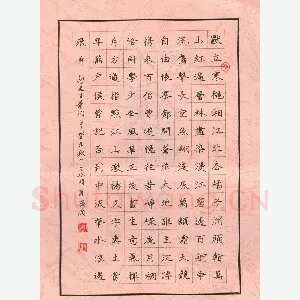 獨立寒秋湘江北去橘子洲頭看萬
山紅遍層林盡染漫江碧透百舸爭
流鷹擊長空魚翔淺底萬類霜天競
自由悵寥廓問蒼茫大地誰主沉浮
攜來百侶曾游憶往昔崢嶸歲月稠
恰同學少年風華正茂書生意氣揮
斥方遒指點江山激揚文字糞土當
年萬戶侯曾記否到中流擊水浪遏
飛舟